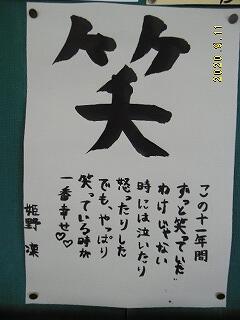 笑
この十一年間
ずっと笑っていた
わけじゃない
時には泣いたり
怒ったりした
でも、やっぱり
笑っている時が
一番幸せ♡♡
姫野 凜
2020.9.11